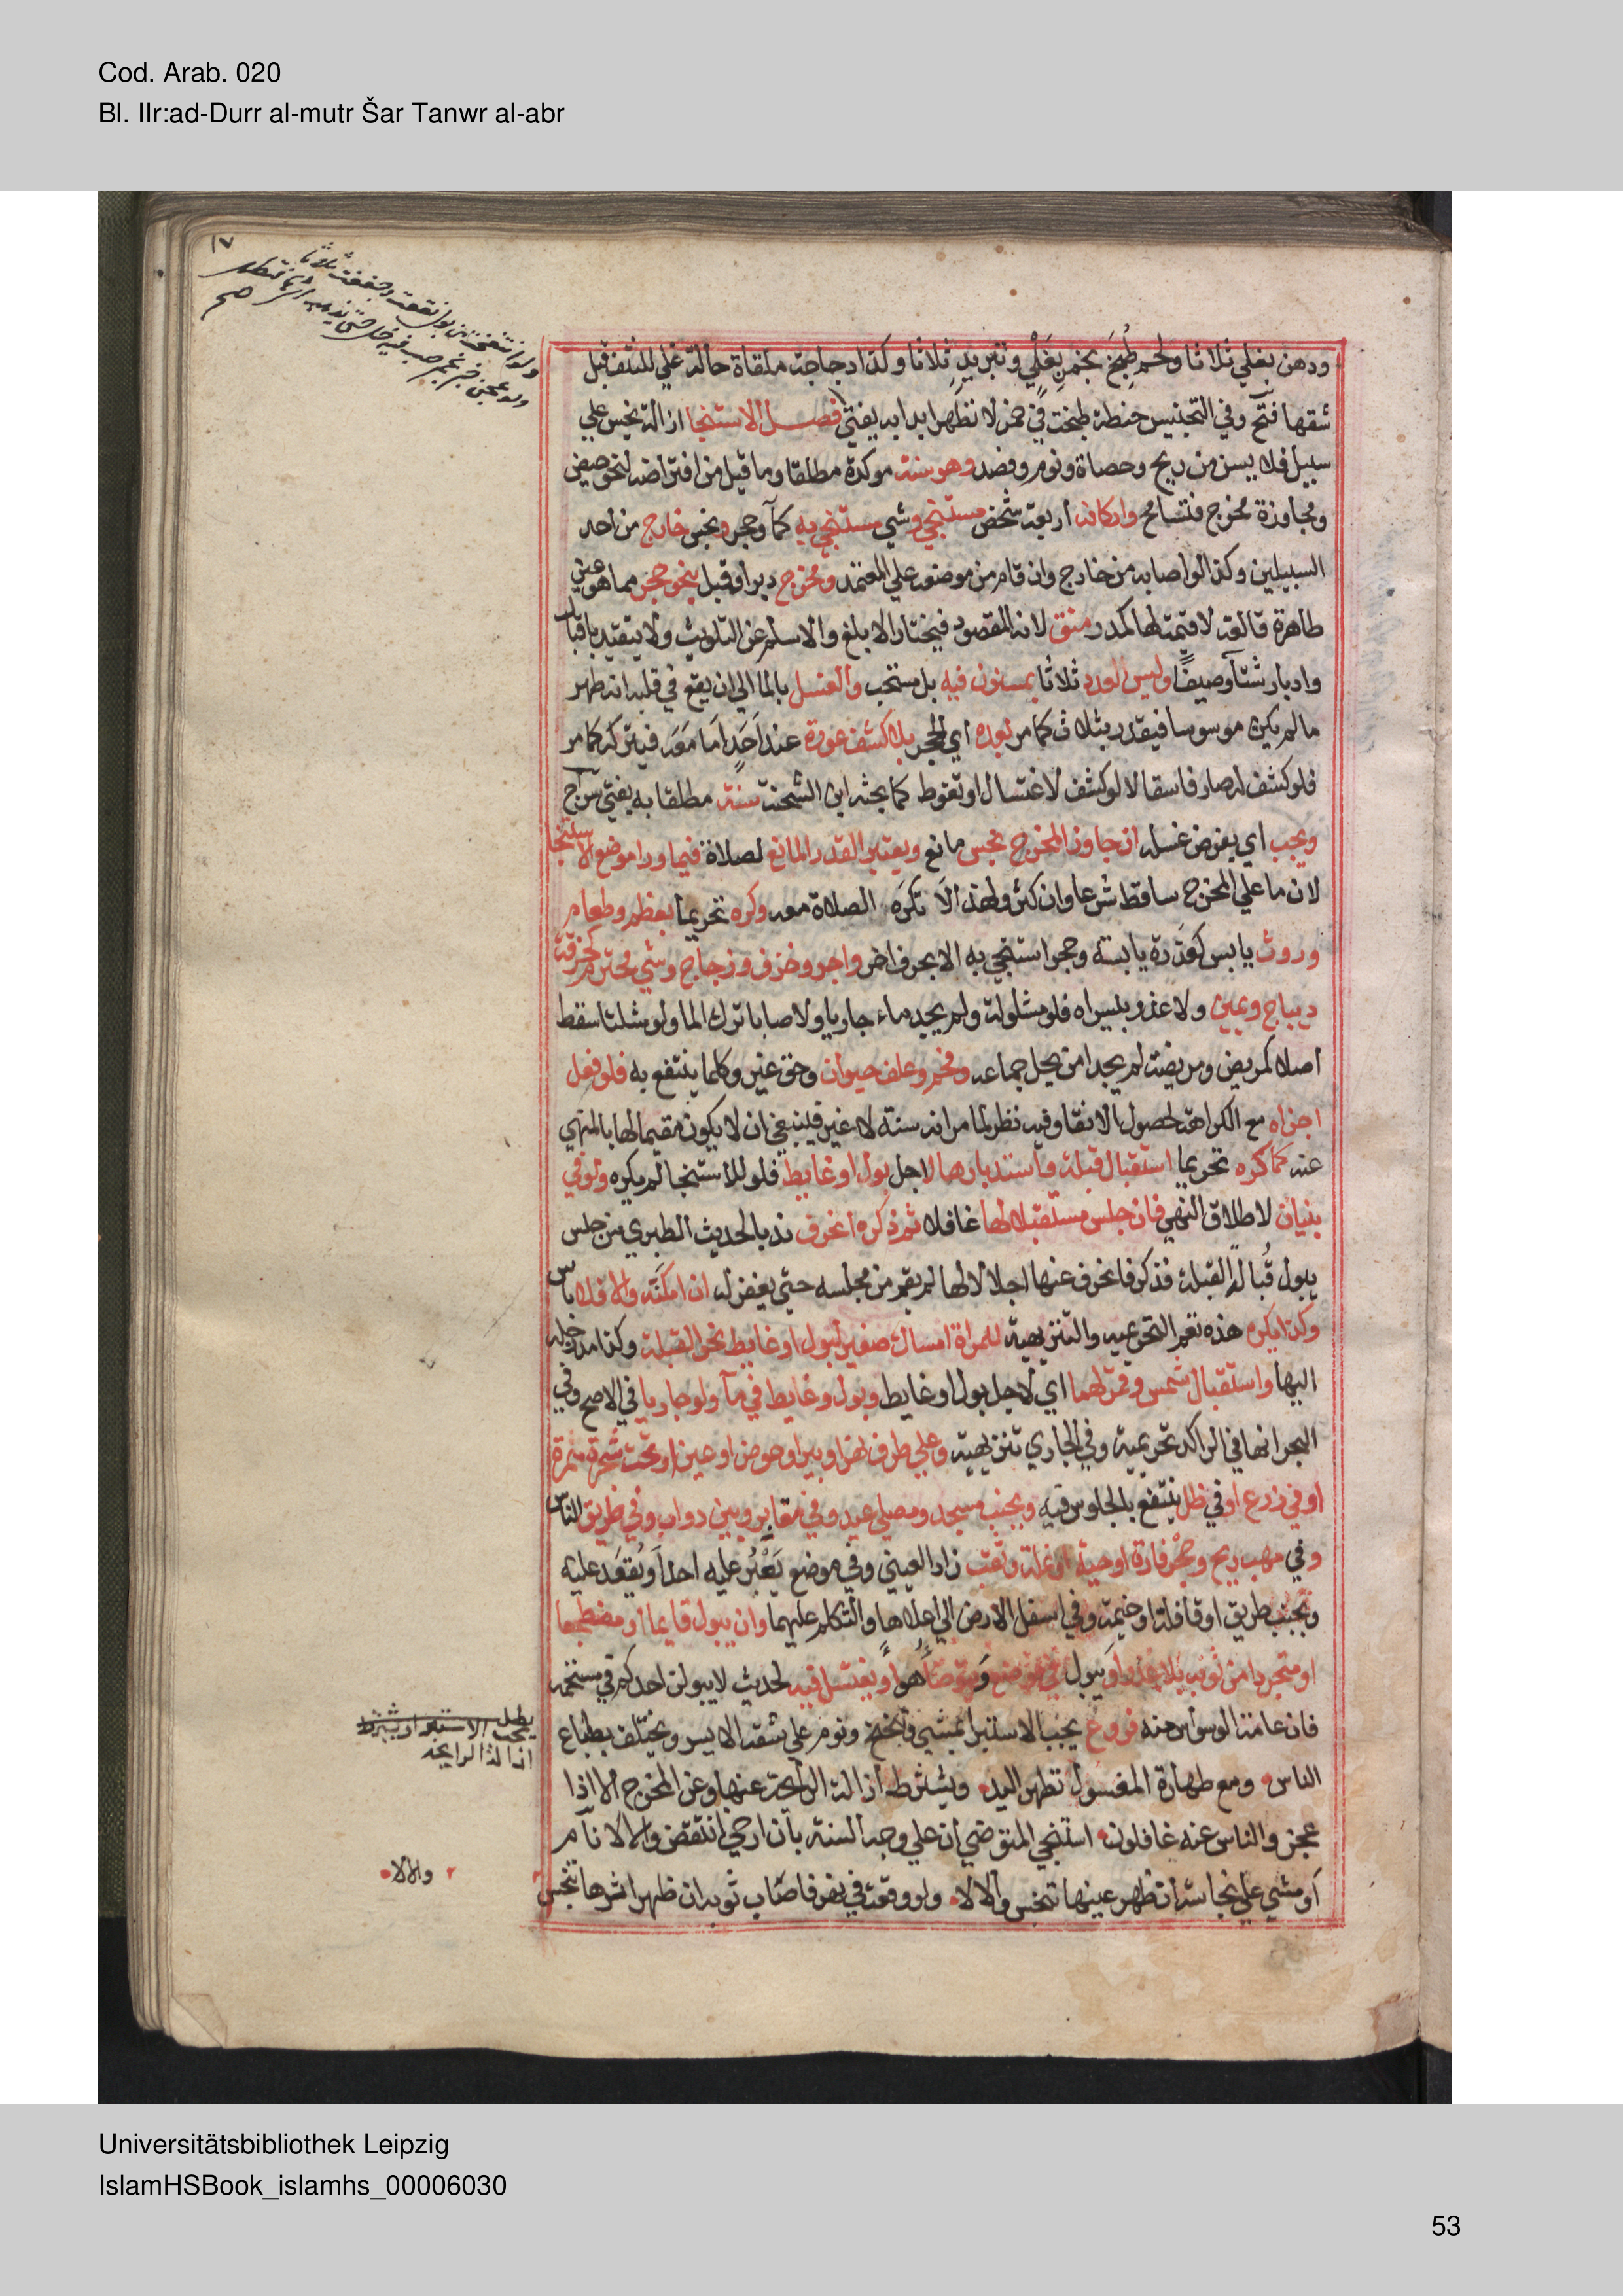 Cod. Arab. 020
Bl. IIr:ad-Durr al-mutr Šar Tanwr al-abr
١٧
ولو انتفخت من بول نقعت وجففت ثلاثا
ولو عجن خبز بخمر صب فيه خل حتى يذهب اثرها فيطهر
صح
ودهن يغلي ثلاثا ولحم طُبِخَ بخمرٍ بِغَلْيٍ وتبريدٍ ثلاثا وكذا دجاجة ملقاة حالة غلي للنتف قبل
شقها فتح وفي التجنيس حنطة طبخت في خمر لا تطهر ابدا به يفتى فصل الاستنجا ازالة نجس علي
سبيل فلا يسن من ريح وحصاة ونوم وفصد وهو سنة موكدة مطلقا وما قيل من افتراضه لنحو حيض
ومجاوزة مخرج فتسامح واركانه اربعة شخص مستنجي وشي مستنجي به كمآ وحجر ونجس خارج من احد
السبيلين وكذا لو اصابه من خارج وان قام من موضعه علي المعتمد ومخرج دبر او قبل بنحو حجر مما هو عين
طاهرة قالعة لا قيمة لها كمدر منق لانه المقصود فيختار الابلغ والاسلم عن التلويث ولا يتقيد باقبال
وادبار شتآ وصيفًا وليس العدد ثلاثا بمسنون فيه بل مستحب والغسل بالمآ الي ان يقع في قلبه انه طهر
ما لم يكن موسوسا فيقدر بثلاث كما مر بعده اي الحجر بلا كشف عورة عند اَحَدٍ اَما مَعَه فيتركه كما مر
فلو كشف له صار فاسقا لا لو كشف لاغتسال او تغوط كما بحثه ابن الشحنة سنة مطلقا به يفتي سراج
ويجب اي يفرض غسله ان جاوز المخرج نجس مانع ويعتبر القدر المانع لصلاة فيما ورا موضع الاستنجا
لان ما علي المخرج ساقط شرعا وان كثر ولهذا لَا تكرَه الصلاة معه وكره تحريما بعظم وطعام
وروث يابس كعَذَرة يابسة وحجر استنجي به الا بحرف اخر واجر وخزف وزجاج وشي محترم كخرقة
ديباج ويمين ولا عذر بيسراه فلو مشلولة ولم يجد ماء جاريا ولا صابا ترك المآ ولو شلتا سقط
اصلا كمريض ومريضة لم يجدا من يحل جماعه وفحم وعلف حيوان وحق غير وكلما ينتفع به فلو فعل
اجزاه مع الكراهة لحصول الانقا وفيه نظر لما مر انه سنة لا غير فينبغي ان لا يكون مقيما لها بالمنهي
عنه كما كره تحريما استقبال قبلة واستدبارها لاجل بول او غايط فلو للاستنجا لم يكره ولو في
بنيان لاطلاق النهي فان جلس مستقبلا لها غافلا ثم ذكره انحرف ندبا لحديث الطبري من جلس
يبول قُبالةَ القبلة فذكر فانحرف عنها اجلالا لها لم يقم من مجلسه حتي يغفر له ان امكنه والا فلا باس
وكذا يكره هذه تعم التحريمية والتنزيهية للمراة امساك صغير لبول او غايط نحو القبلة وكذا مد رجله
اليها واستقبال شمس وقمر لهما اي لاجل بول او غايط وبول وغايط في مآ ولو جاريا في الاصح وفي
البحر انها في الراكد تحريمية وفي الجاري تنزيهية وعلي طرف نهر او بير او حوض او عين او تحت شجرة مثمرة
او في زرع او في ظل ينتفع بالجلوس فيه وبجنب مسجد ومصلي عيد وفي مقابر وبين دواب وفي طريق الناس
وفي مهب ريح وجحْر فارة او حية او نملة وثقب زاد العيني وفي موضع يَعْبُر عليه احد اَو يُقعَد عليه
وبجنب طريق او قافلة او خيمة وفي اسفل الارض الي اعلاها والتكلم عليهما وان يبول قايما او مضطجعا
او متجردا من ثوبه بلا عذر او يبول في موضع ويتوضأ هو او يغتسل فيه لحديث لا يبولن احدكم في مستحمه
فان عامة الوسواس منه فروع يجب الاستبرا بمشي وتنحنح ونوم علي شقه الايسر ويختلف بطباع
الناس ومع طهارة المغسول تطهر اليد ويشترط ازالة الرايحة عنها وعن المخرج الا اذا
عجز والناس عنه غافلون استنجي المتوضي ان علي وجه السنة بان ارخي انتقض والا لا نآم
اَو مشي علي نجاسة ان ظهر عينها تنجس والا لا ولو وقعت في نهر فاصاب ثوبه ان ظهر اثرها تنجس
٢ والا لا
Universitätsbibliothek Leipzig
IslamHSBook_islamhs_00006030
53